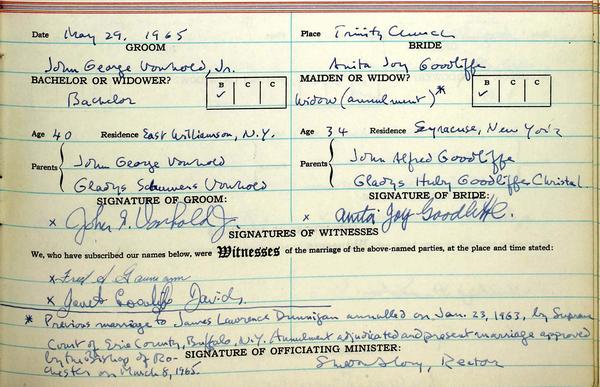 Date May 29, 1965 Place Trinity Church
GROOM BRIDE
John George Vonhold, Jr. Anita Joy Goodliffe
BACHELOR OR WIDOWER? B C C MAIDEN OR WIDOW? B C C
Bachelor ✓ Widow (annulment)* ✓
Age 40 Residence East Williamson, N.Y. Age 34 Residence Syracuse, New York
Parents John George Vonhold Parents John Alfred Goodliffe
Gladys Vonhold Gladys Huby Goodliffe Christal
SIGNATURE OF GROOM: SIGNATURE OF BRIDE:
x John G. Vonhold Jr. x Anita Joy Goodliffe.
SIGNATURES OF WITNESSES
We, who have subscribed our names below, were Witnesses of the marriage of the above-named parties, at the place and time stated:
x Fred A
x Janet Goodliffe Davids
* Previous marriage to James Lawrence Dunnigan annulled on Jan. 23, 1963, by Supreme
Court of Erie County, Buffalo, N.Y. Annulment adjudicated and present marriage approved
by the Bishop of Ro-
chester on March 8, 1965.
SIGNATURE OF OFFICIATING MINISTER:
Rector